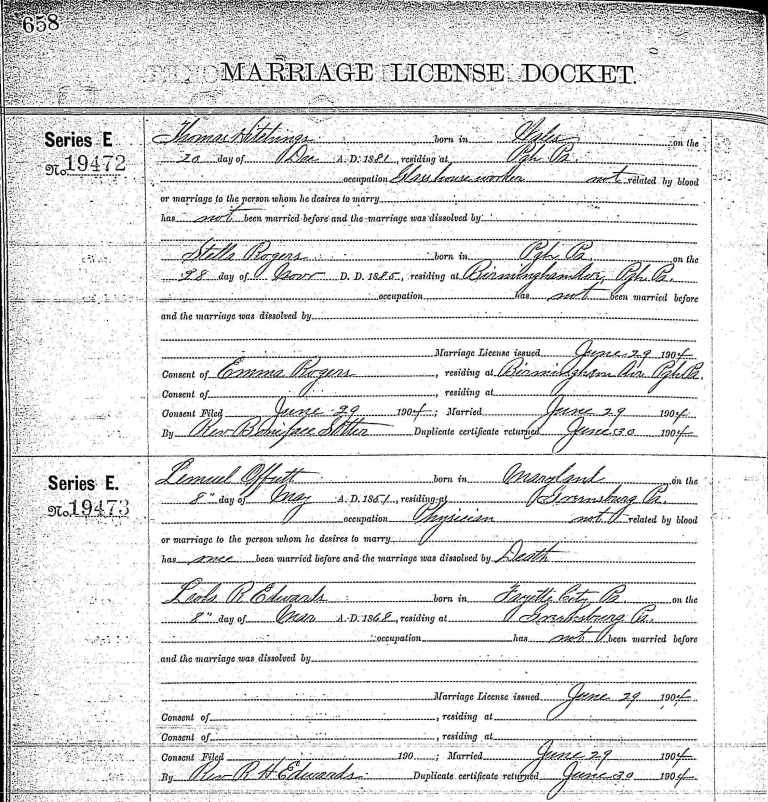 658
MARRIAGE LICENSE DOCKET.
Series E Thomas Hitchings born in Wales on the
No. 19472 20 day of Dec A. D. 1881, residing at Pgh Pa.
occupation Glass house worker not related by blood
or marriage to the person whom he desires to marry
has not been married before and the marriage was dissolved by
Stella Rogers born in Pgh Pa on the
28 day of Nov D. D. 1885, residing at Birmingham Av, Pgh Pa.
occupation has not been married before
and the marriage was dissolved by
Marriage License issued June 29 1904
Consent of Emma Rogers, residing at Birmingham Av Pgh Pa.
Consent of , residing at
Consent Filed June 29 1904; Married June 29 1904
By Rev Boniface Duplicate certificate returned June 30 1904
Series E. Lemuel Offutt born in Maryland on the
No. 19473 8" day of May A. D. 1851, residing at Greensburg Pa.
occupation Physician not related by blood
or marriage to the person whom he desires to marry
has once been married before and the marriage was dissolved by Death
Leola R Edwards born in Fayette City Pa on the
8" day of Mar A. D. 1868, residing at Greensburg Pa.
occupation has not been married before
and the marriage was dissolved by
Marriage License issued June 29 1904
Consent of , residing at
Consent of , residing at
Consent Filed 190 ; Married June 29 1904
By Rev R H Edwards Duplicate certificate returned June 30 1904